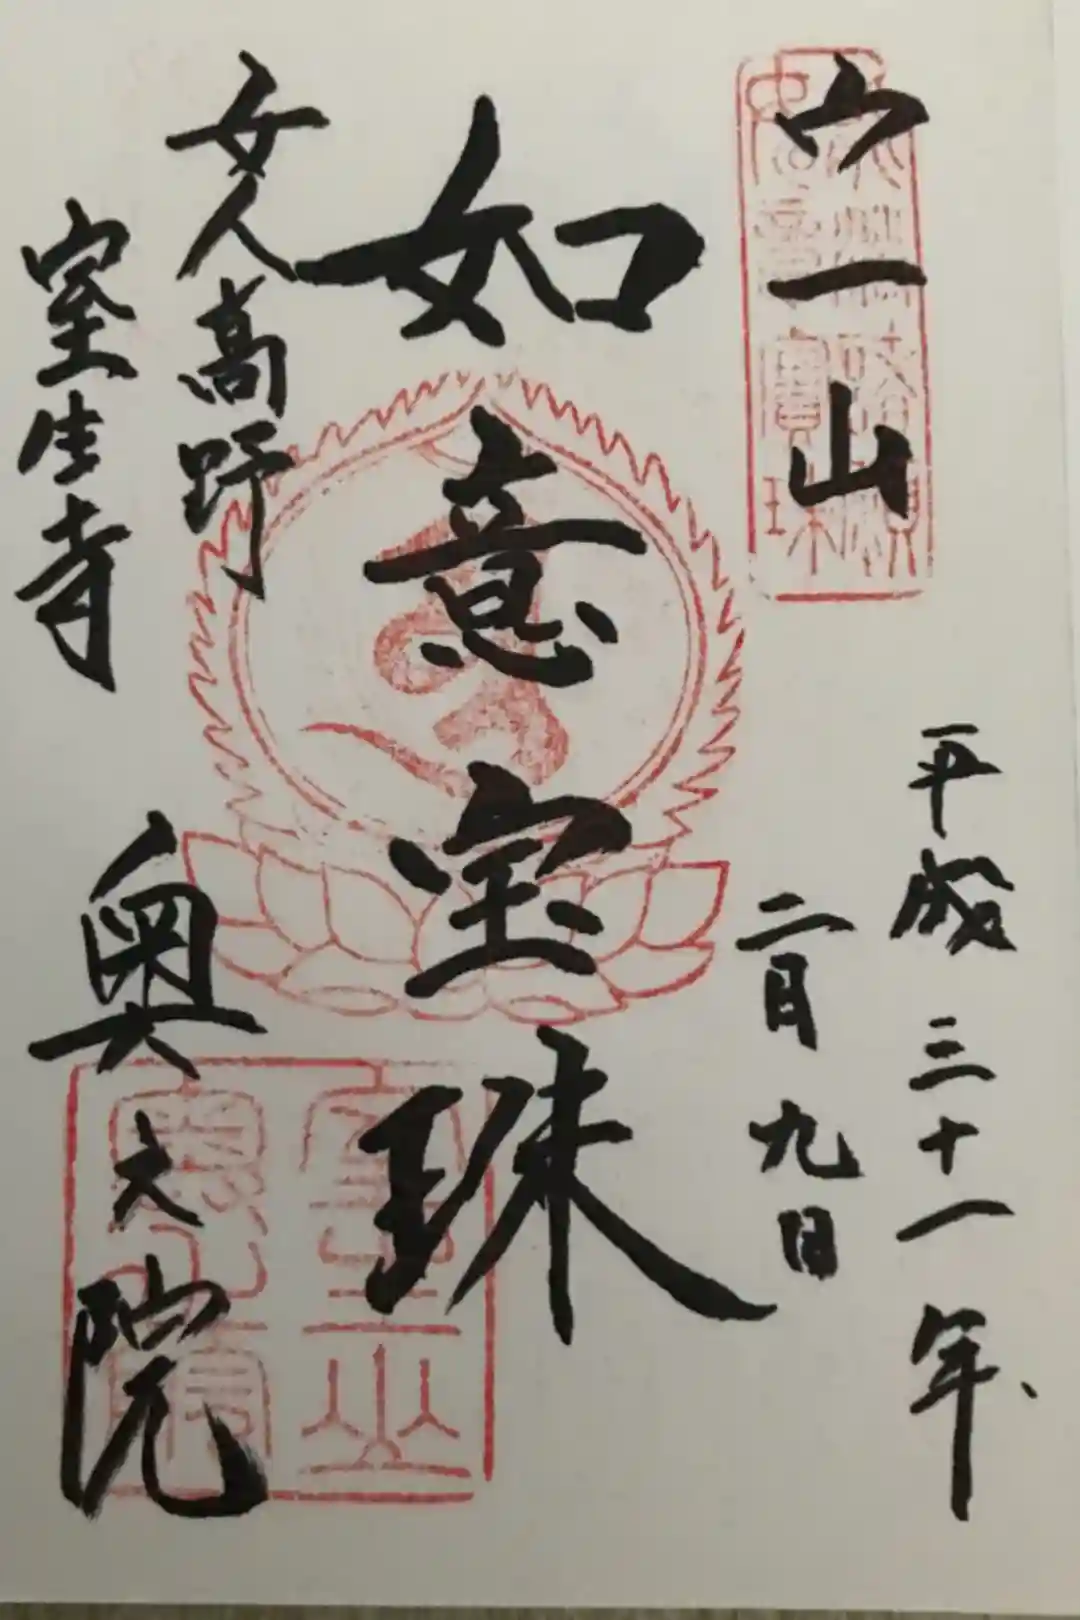 宀一山
平成三十一年、
二月九日
如意宝珠
女人高野
室生寺
奥之院